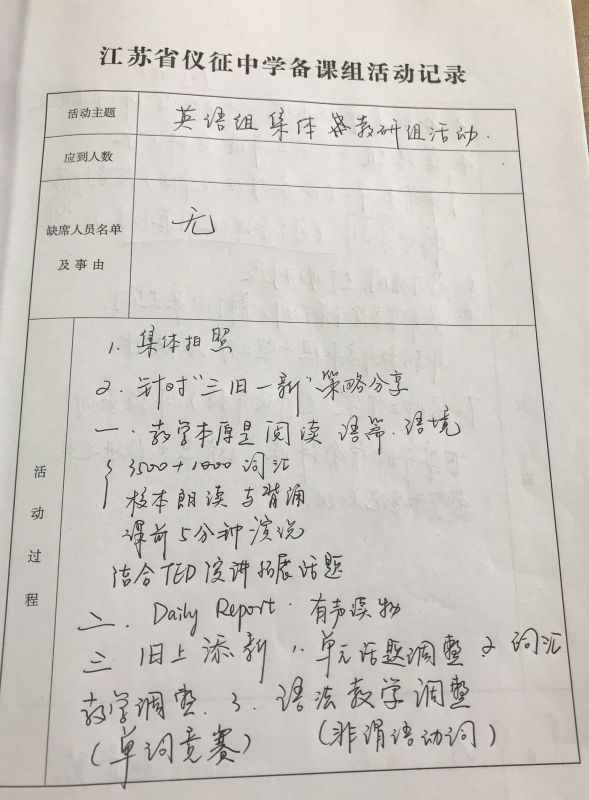 江苏省仪征中学备课组活动记录
活动主题
英语组集体教研组活动.
应到人数
缺席人员名单
及事由
无
活动过程
1. 集体拍照
2. 针对"三旧一新"策略分享
一. 教学本原是阅读 语篇. 语境
3500+1000词汇
校本朗读与背诵
课前5分钟演说
结合TED演讲拓展话题
二. Daily Report. 有声读物
三 旧上添新 1. 单元话题调整 2 词汇
教学调整. 3. 语法教学调整
(单词竞赛) (非谓语动词)